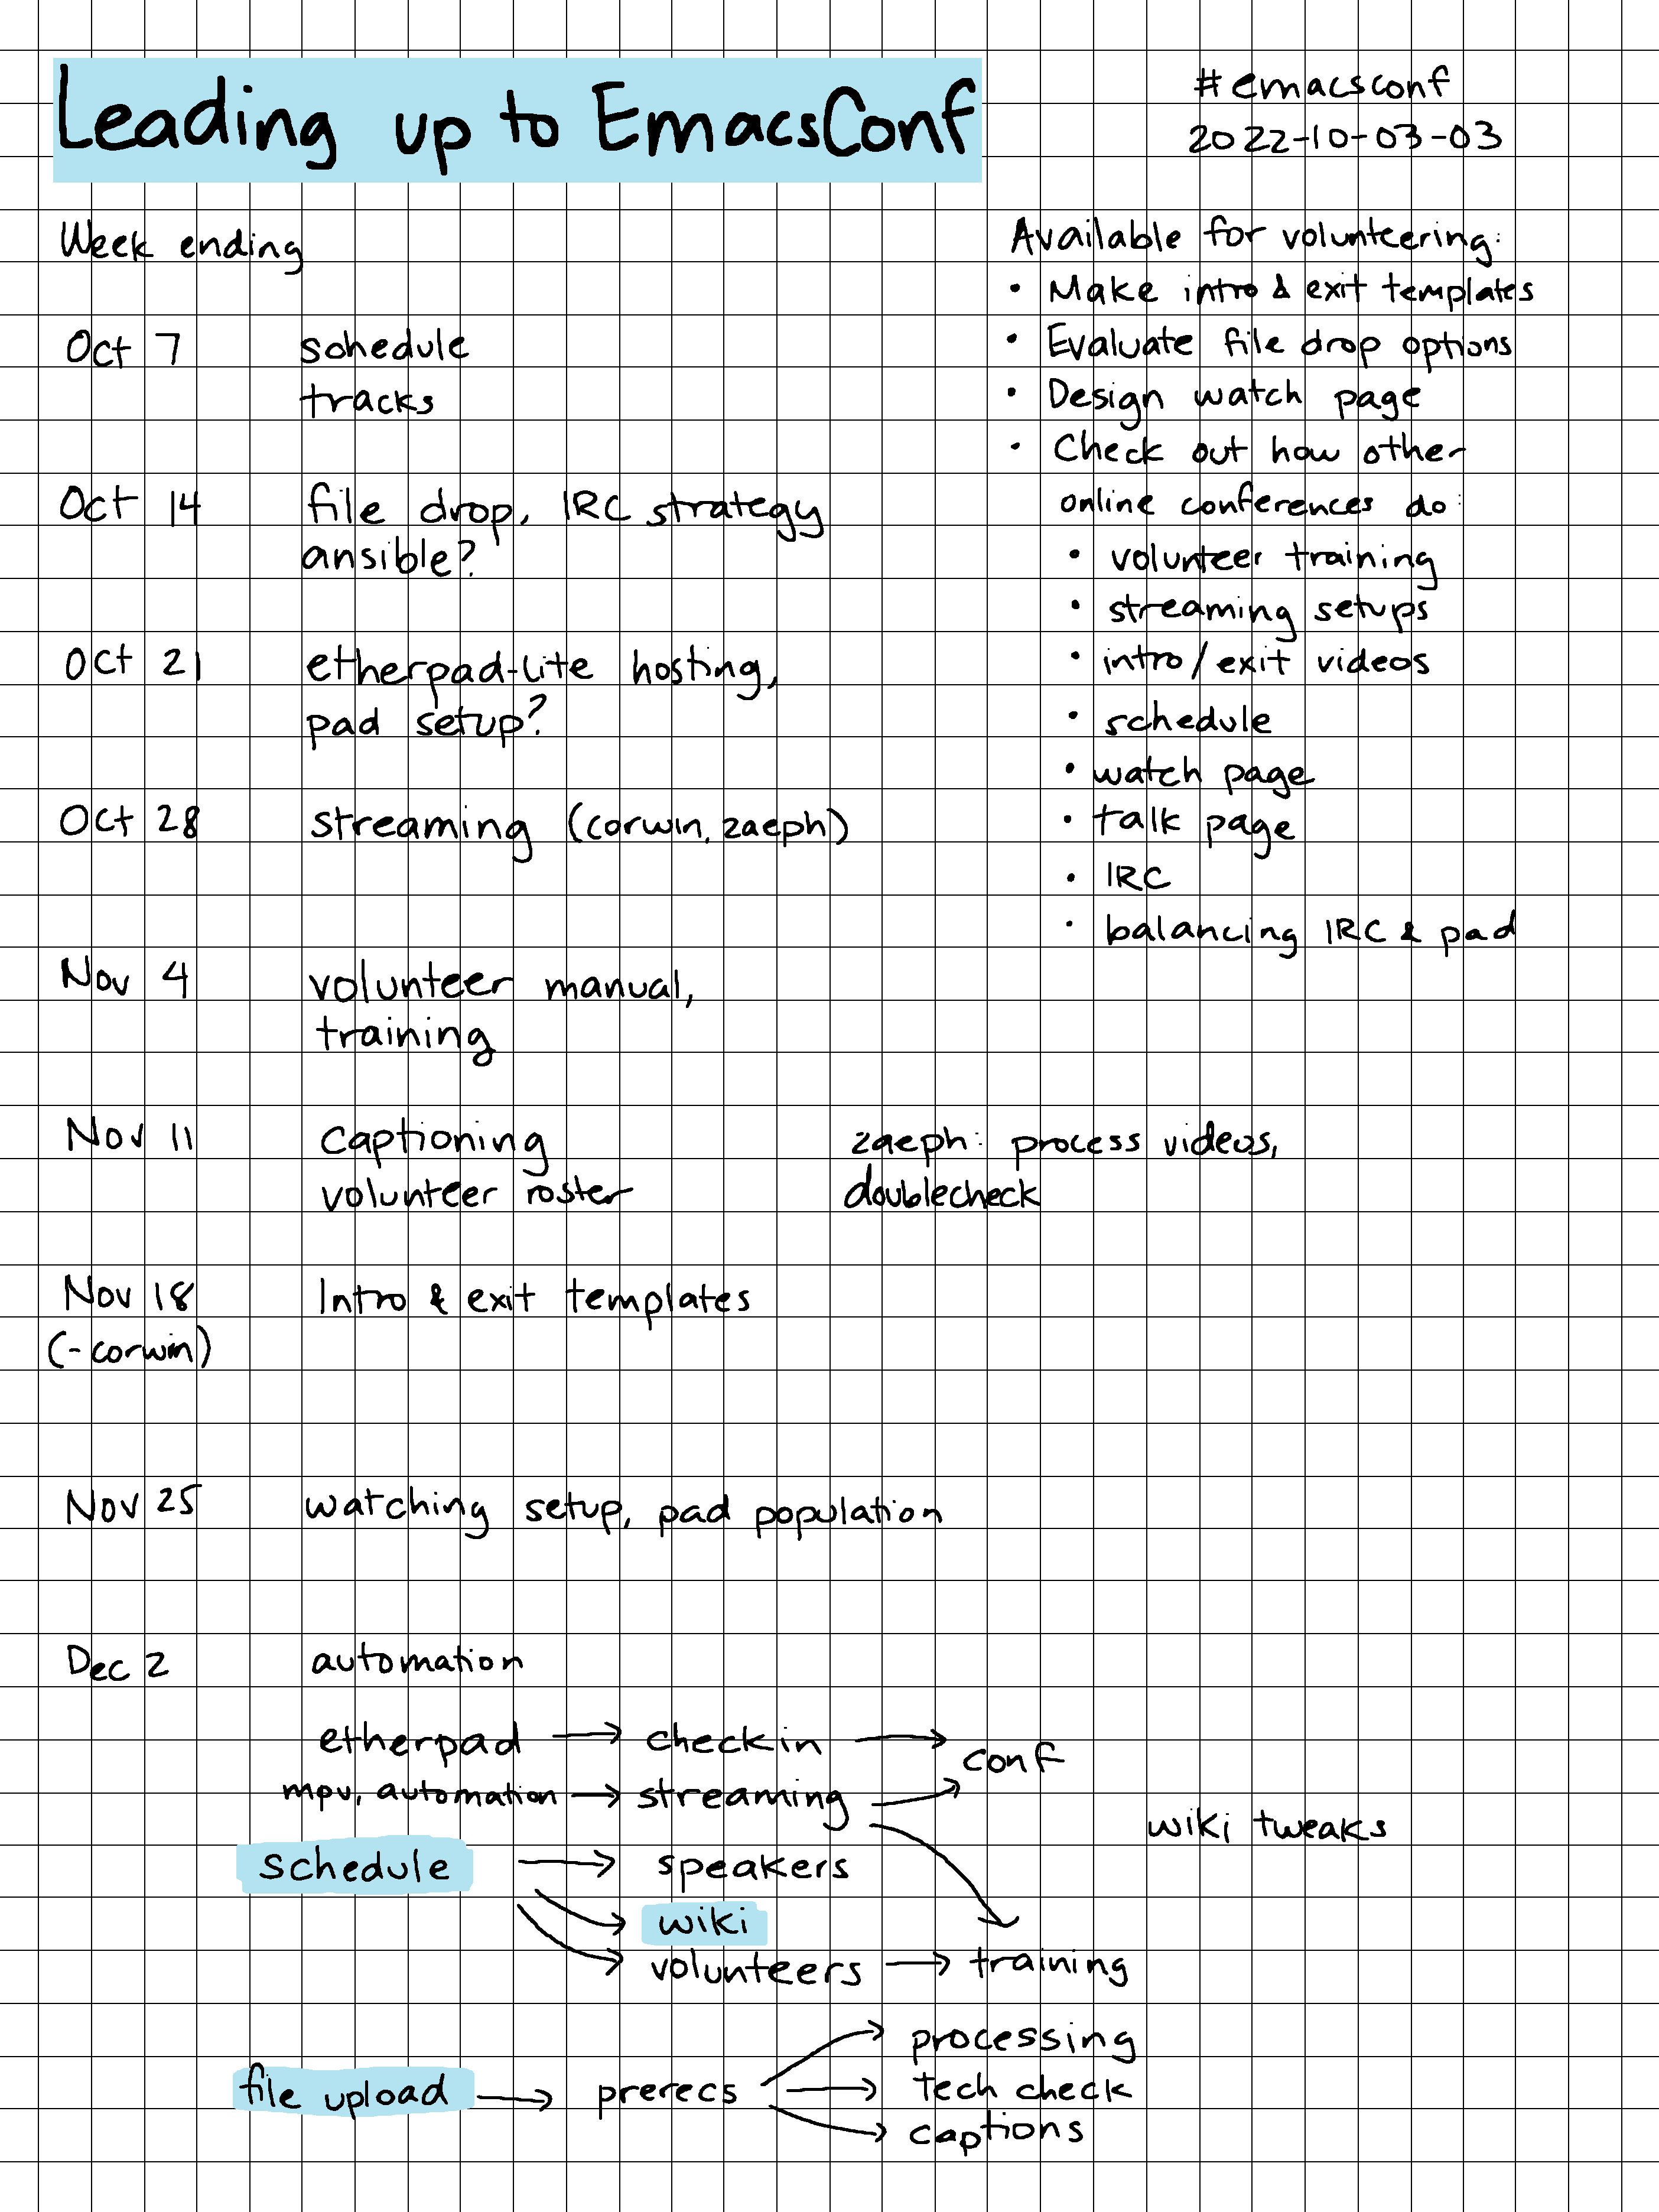 Leading up to EmacsConf
#emacsconf
2022-10-03-03
Week ending
Oct 7 schedule
tracks
Oct 14 file drop, IRC strategy
ansible?
Oct 21 etherpad-lite hosting,
pad setup?
Oct 28 streaming (corwin, zaeph)
Nov 4 volunteer manual,
training
Nov 11 captioning
volunteer roster
zaeph: process videos,
doublecheck
Nov 18 Intro & exit templates
(-corwin)
Nov 25 watching setup, pad population
Dec 2 automation
Available for volunteering:
• Make intro & exit templates
• Evaluate file drop options
• Design watch page
• Check out how other
online conferences do:
• volunteer training
• streaming setups
• intro/exit videos
• schedule
• watch page
• talk page
• IRC
• balancing IRC & pad
etherpad → checkin → conf
mpv, automation → streaming →
schedule → speakers
→ wiki
→ volunteers → training
wiki tweaks
file upload → prerecs → processing
→ tech check
→ captions